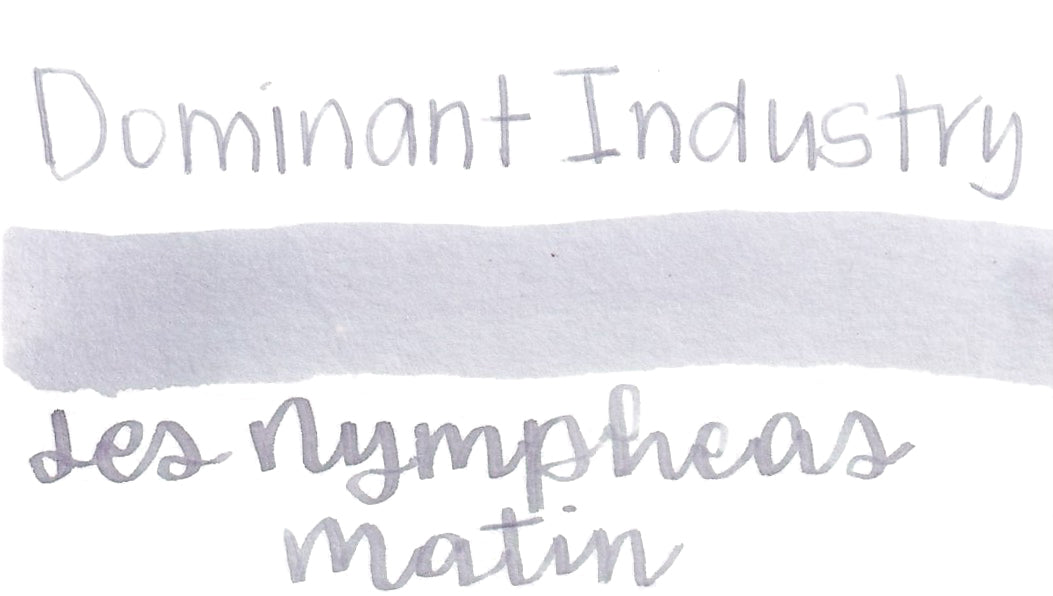 Dominant Industry
Les Nympheas
Matin